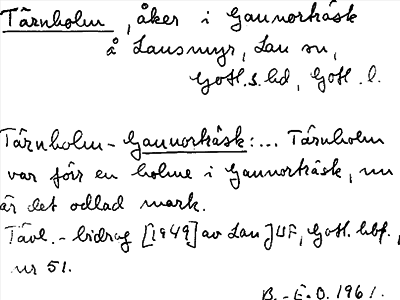 Tärnholm, åker i Gannorträsk
å Lausmyr, Lau sn,
Gotl. s. hd, Gotl. l.
Tärnholm - Gannorträsk: ... Tärnholm
var förr en holme i Gannorträsk, nu
är det odlad mark.
Tävl.-bidrag [1949] av Lau JUF, Gotl. hbf.,
nr 51.
B.-E.O. 1961.